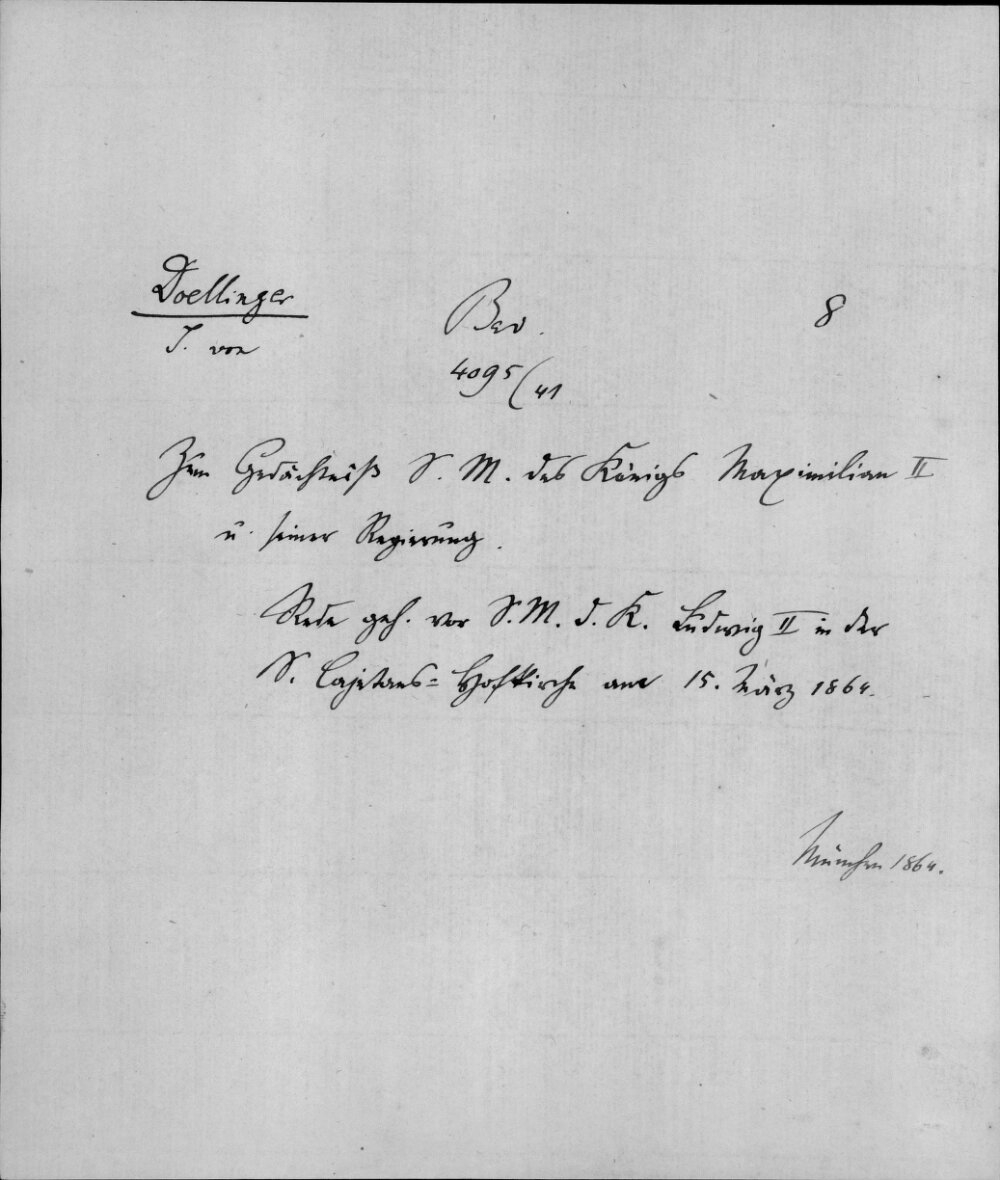 Doellinger
J. von
Bav. 8
4095/41
Zum Gedächtniß S. M. des Königs Maximilian II
u. seiner Regierung.
Rede geh. vor S. M. d. K. Ludwig II in der
S. Cajetans=Hofkirche am 15. März 1864.
München 1864.